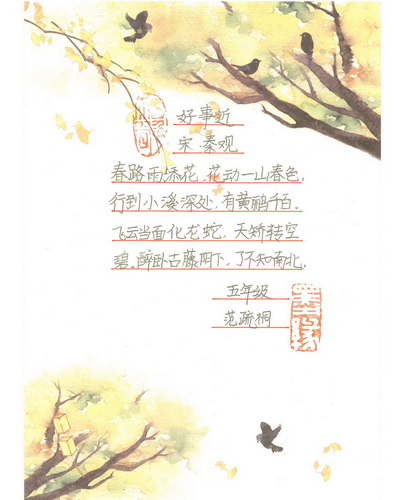 好事近
宋·秦观
春路雨添花，花动一山春色。
行到小溪深处，有黄鹂千百。
飞云当面化龙蛇，天矫转空
碧。醉卧古藤阴下，了不知南北。
五年级
范疏桐
墨缘